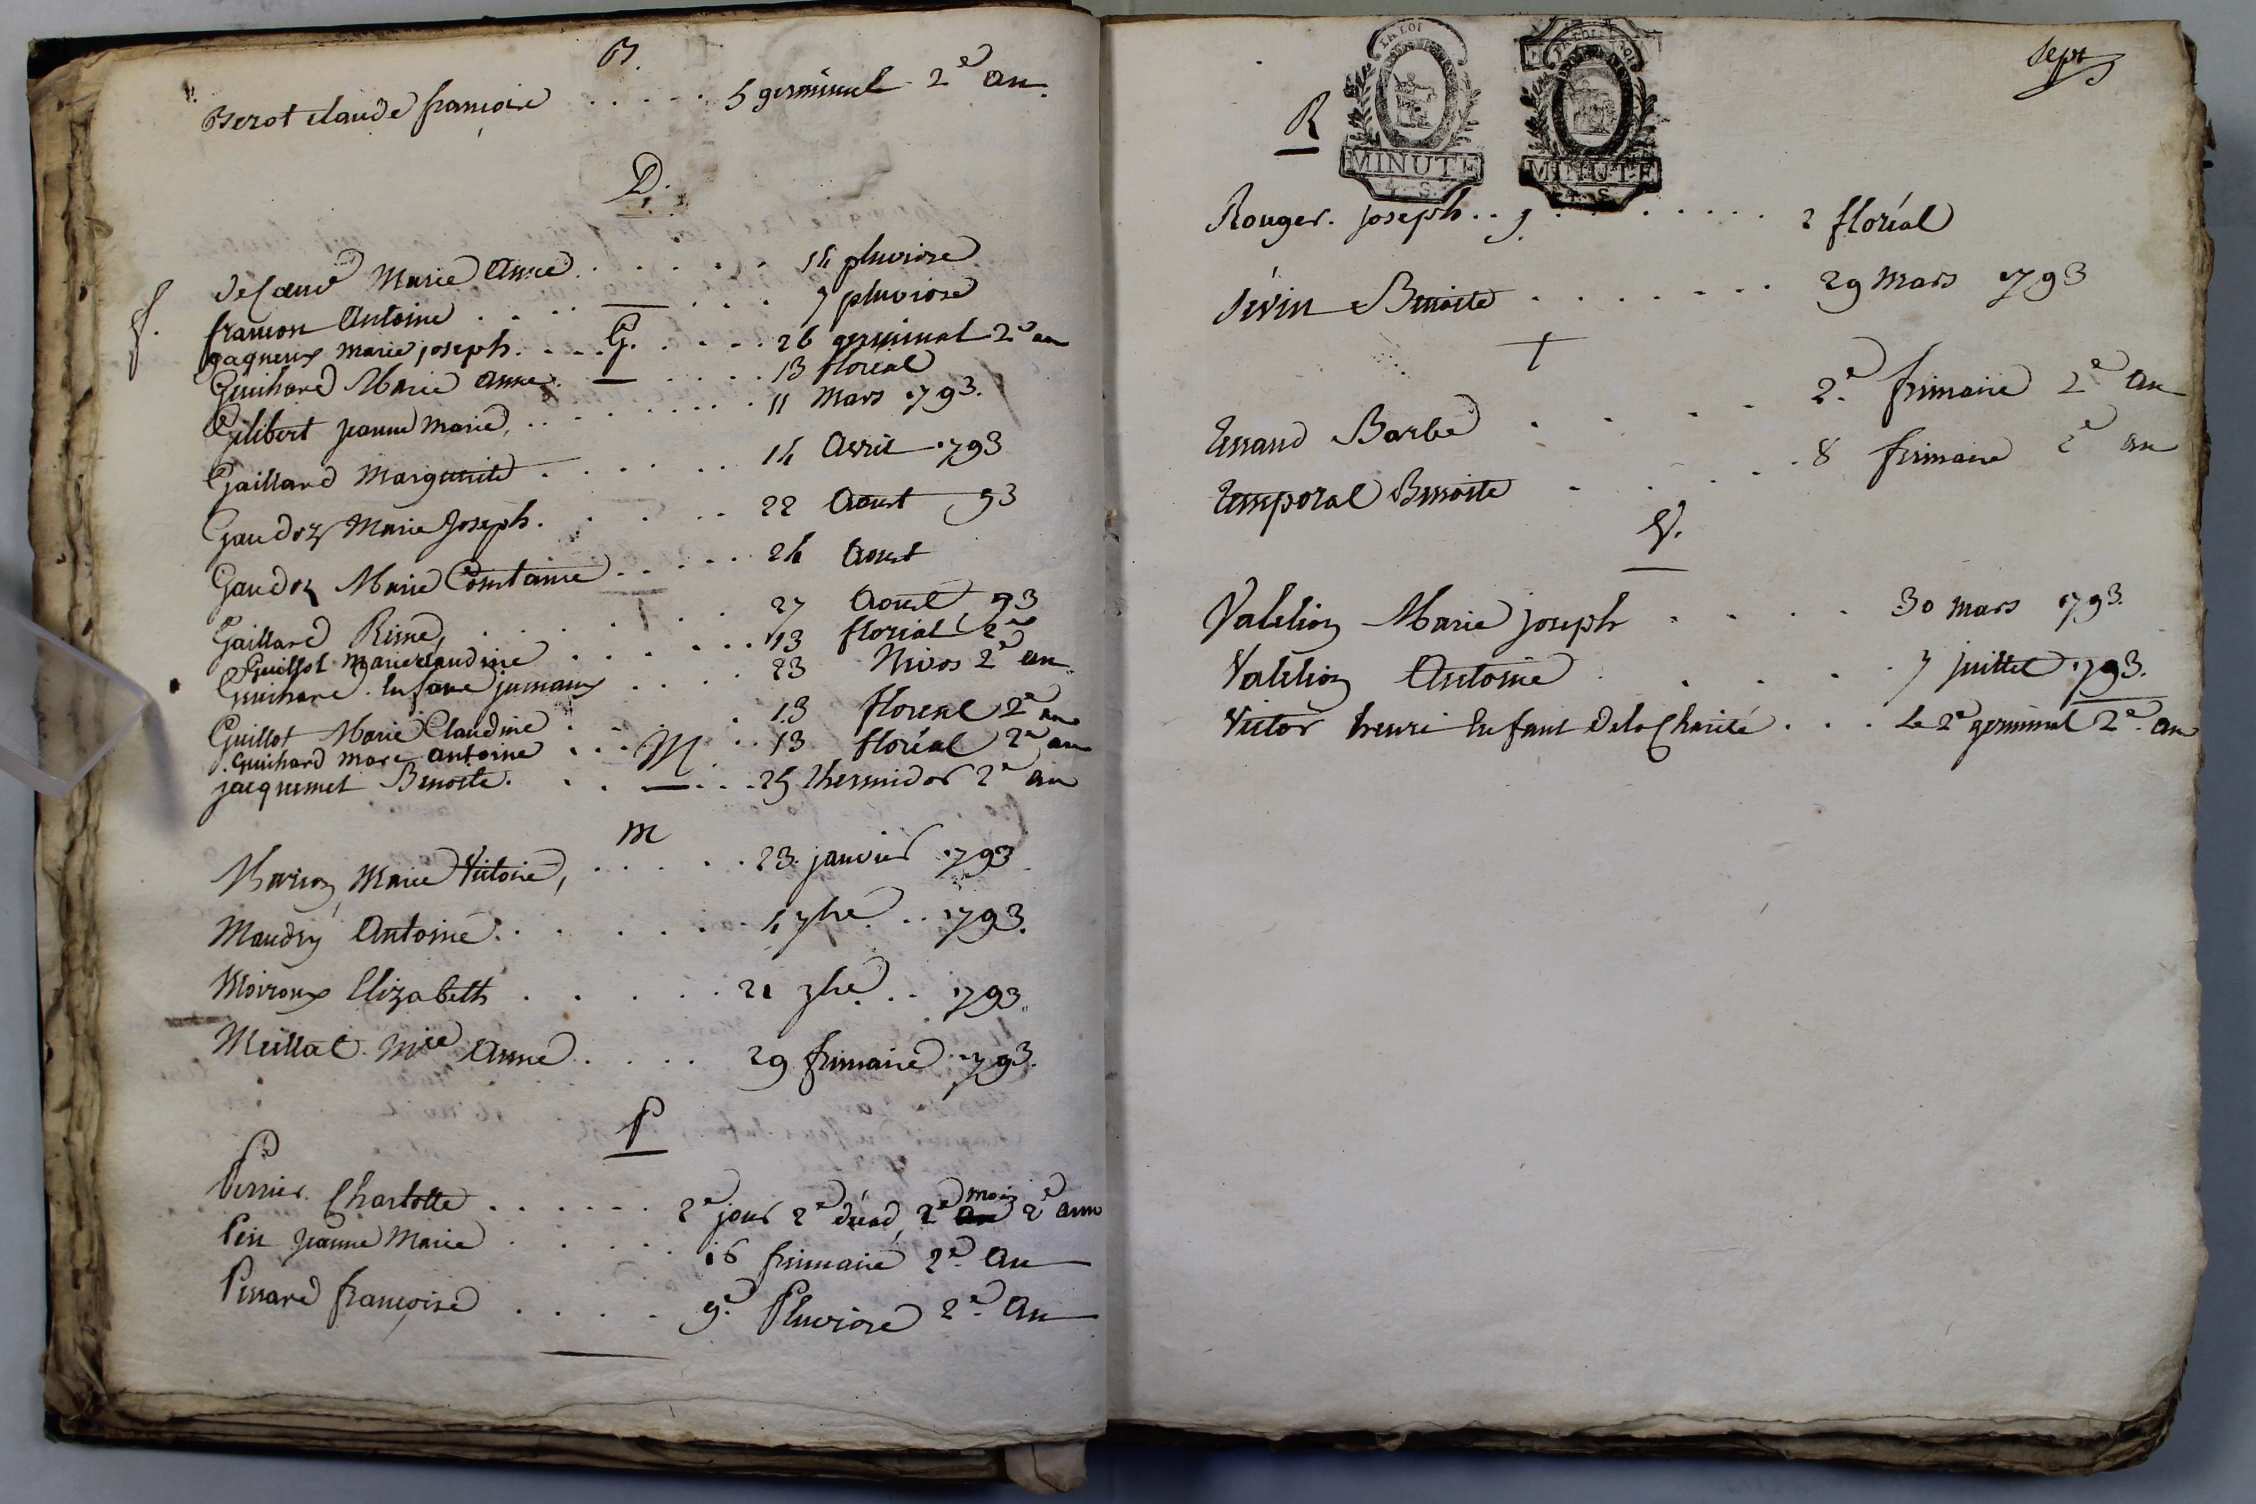 B.
Berot claude françoise ..... 5 germinal 2e an.
D.
Marie Anne ...... 14 pluviose
f. françon Antoine .... 7 pluviose
G.
gagneux marie joseph. .... 26 germinal 2e an
Guichard Marie Anne. .... 13 floréal
Gilibert jeanne Marie, ....... 11 Mars 1793.
Gaillard Margueritte ...... 14 Avril 1793
Gaudoz Marie Joseph. .... 22 Aoust 93
Gaudoz Marie Constance ..... 24 Aoust
Gaillard ....... 27 Aoust 93
Guillot Marie claudine ...... 13 floréal 2e
Guichard. Enfans jumeaux .... 23 Nivos 2e an
Guillot Marie Claudine .... 13 floreal 2e an
Guichard marc antoine .... 13 floréal 2e an
M
jacquemet Benoite. ..... 25 thermidor 2e an
m
Marion, Marie Victoire, ..... 23 janvier 1793
Maudry Antoine. ...... 4 7bre .. 1793.
Moiroux Elizabeth ..... 21 7bre .. 1793.
Meillat Mie Anne .... 29 frimaire 1793.
P
Perrier Charlotte ...... 2e jour 2e décad, 2e mois 2e ann
Pin Jeanne Marie ..... 16 frimaire 2e An
Pinard françoise .... 9e Pluviose 2e An
sept
LA LOI
MINUTE
4. S.
LA LOI
MINUTE
4. S.
R
Rouger. joseph.. ........ 2 floréal
Sévin Benoite ....... 29 Mars 1793
T
Tissaud Barbe .... 2e frimaire 2e An
Temporal Benoite .... 8 frimaire 2e an
V.
Valelion Marie joseph .... 30 mars 1793.
Valelion Antoine .... 7 juillet 1793.
Victor henri Enfant de la Charité ... Le 2e germinal 2e an